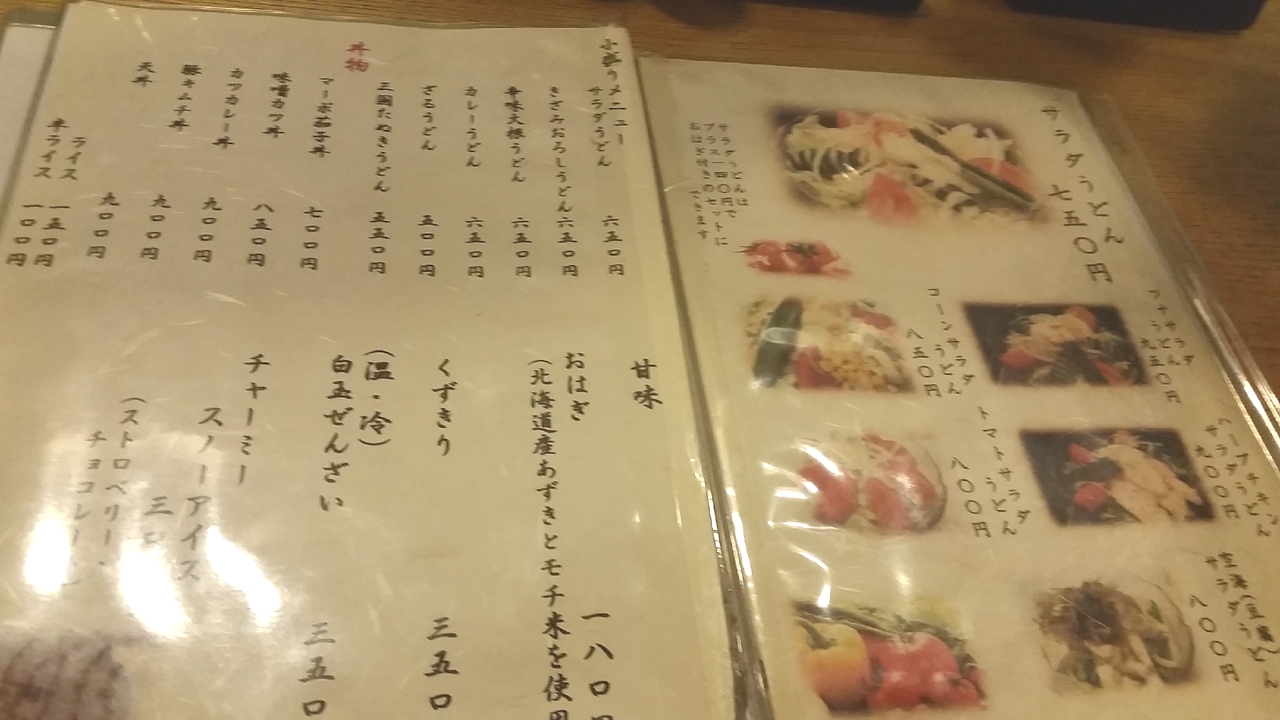 サラダうどん
七五〇円
サラダうどんは
プラス一四〇円で
おはぎ付きのセットに
できます
ツナサラダ
うどん
九五〇円
コーンサラダ
うどん
八五〇円
ハーブチキン
サラダうどん
九〇〇円
トマトサラダ
うどん
八〇〇円
空海(豆腐)
サラダうどん
八〇〇円
小盛りメニュー
サラダうどん 六五〇円
きざみおろしうどん 六五〇円
辛味大根うどん 六五〇円
カレーうどん 六五〇円
ざるうどん 五〇〇円
三国たぬきうどん 五五〇円
丼物
マーボ茄子丼 七〇〇円
味噌カツ丼 八五〇円
カツカレー丼 九〇〇円
豚キムチ丼 九〇〇円
天丼 九〇〇円
ライス 一五〇円
半ライス 一〇〇円
甘味
おはぎ 一八〇
(北海道産あずきとモチ米を使用
くずきり 三五〇
(温・冷)
白玉ぜんざい 三五〇
チャーミー
スノーアイス
(ストロベリー・
チョコレート)